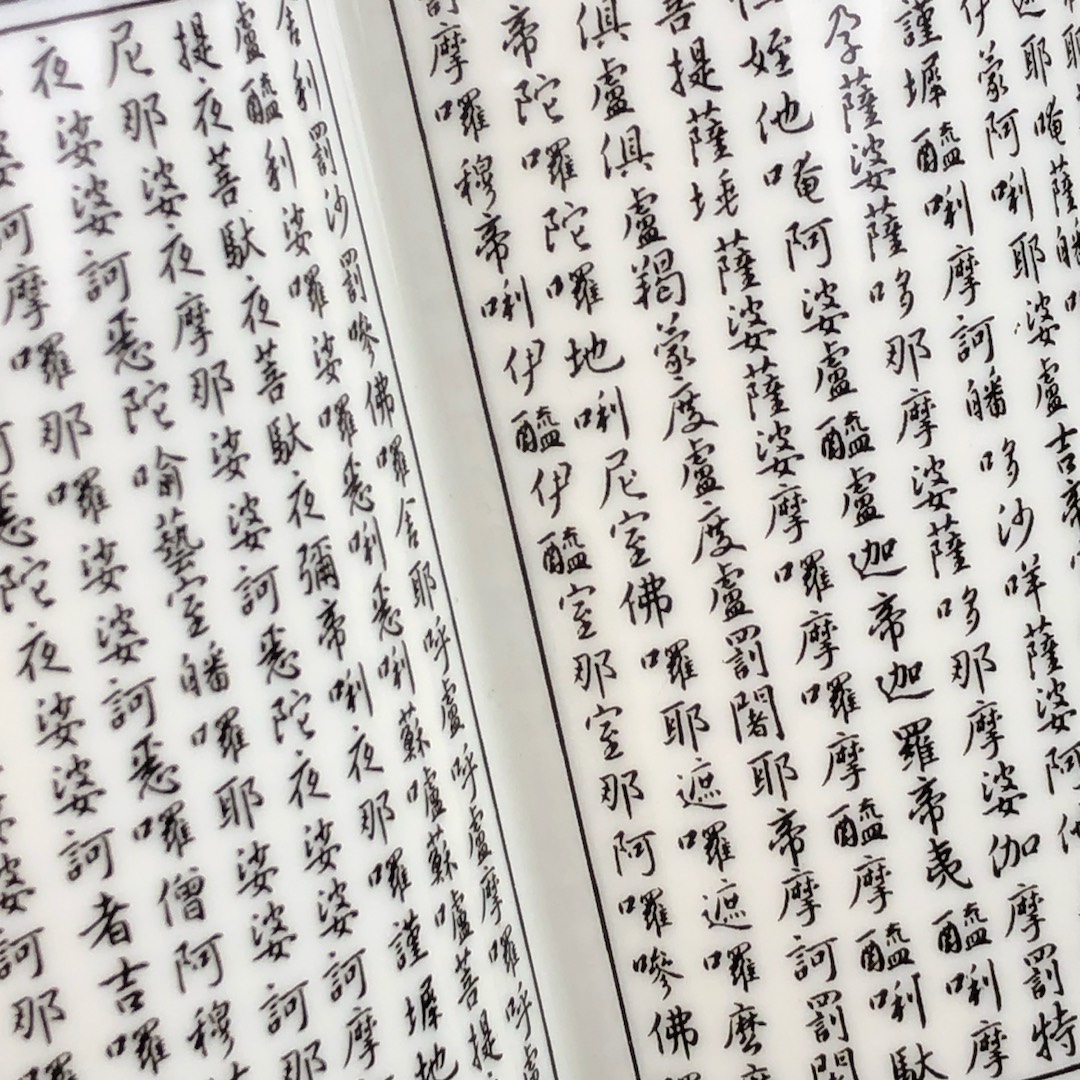 耶唵薩皤
伊蒙阿唎耶婆盧吉帝
謹墀醯唎摩訶皤哆沙咩薩婆阿他
孕薩婆薩哆那摩婆薩哆那摩婆伽摩罰特
姪他唵阿婆盧醯盧迦帝迦羅帝夷醯唎摩
菩提薩埵薩婆薩婆摩囉摩囉摩醯摩醯唎馱
俱盧俱盧羯蒙度盧度盧罰闍耶帝摩訶罰闍
帝陀囉陀囉地唎尼室佛囉耶遮囉遮囉麼
罰摩囉穆帝唎伊醯伊醯室那室那阿囉嘇佛
舍利罰沙罰嘇佛囉舍耶呼盧呼盧摩囉呼盧
盧醯利娑囉娑囉悉唎悉唎蘇嚧蘇嚧菩提
提夜菩馱夜菩馱夜彌帝唎夜那囉謹墀地
尼那婆夜摩那娑婆訶悉陀夜娑婆訶摩
夜娑婆訶悉陀喻藝室皤囉耶娑婆訶那
摩囉那囉娑婆訶悉囉僧阿穆
悉陀夜娑婆訶者吉囉
婆訶那囉